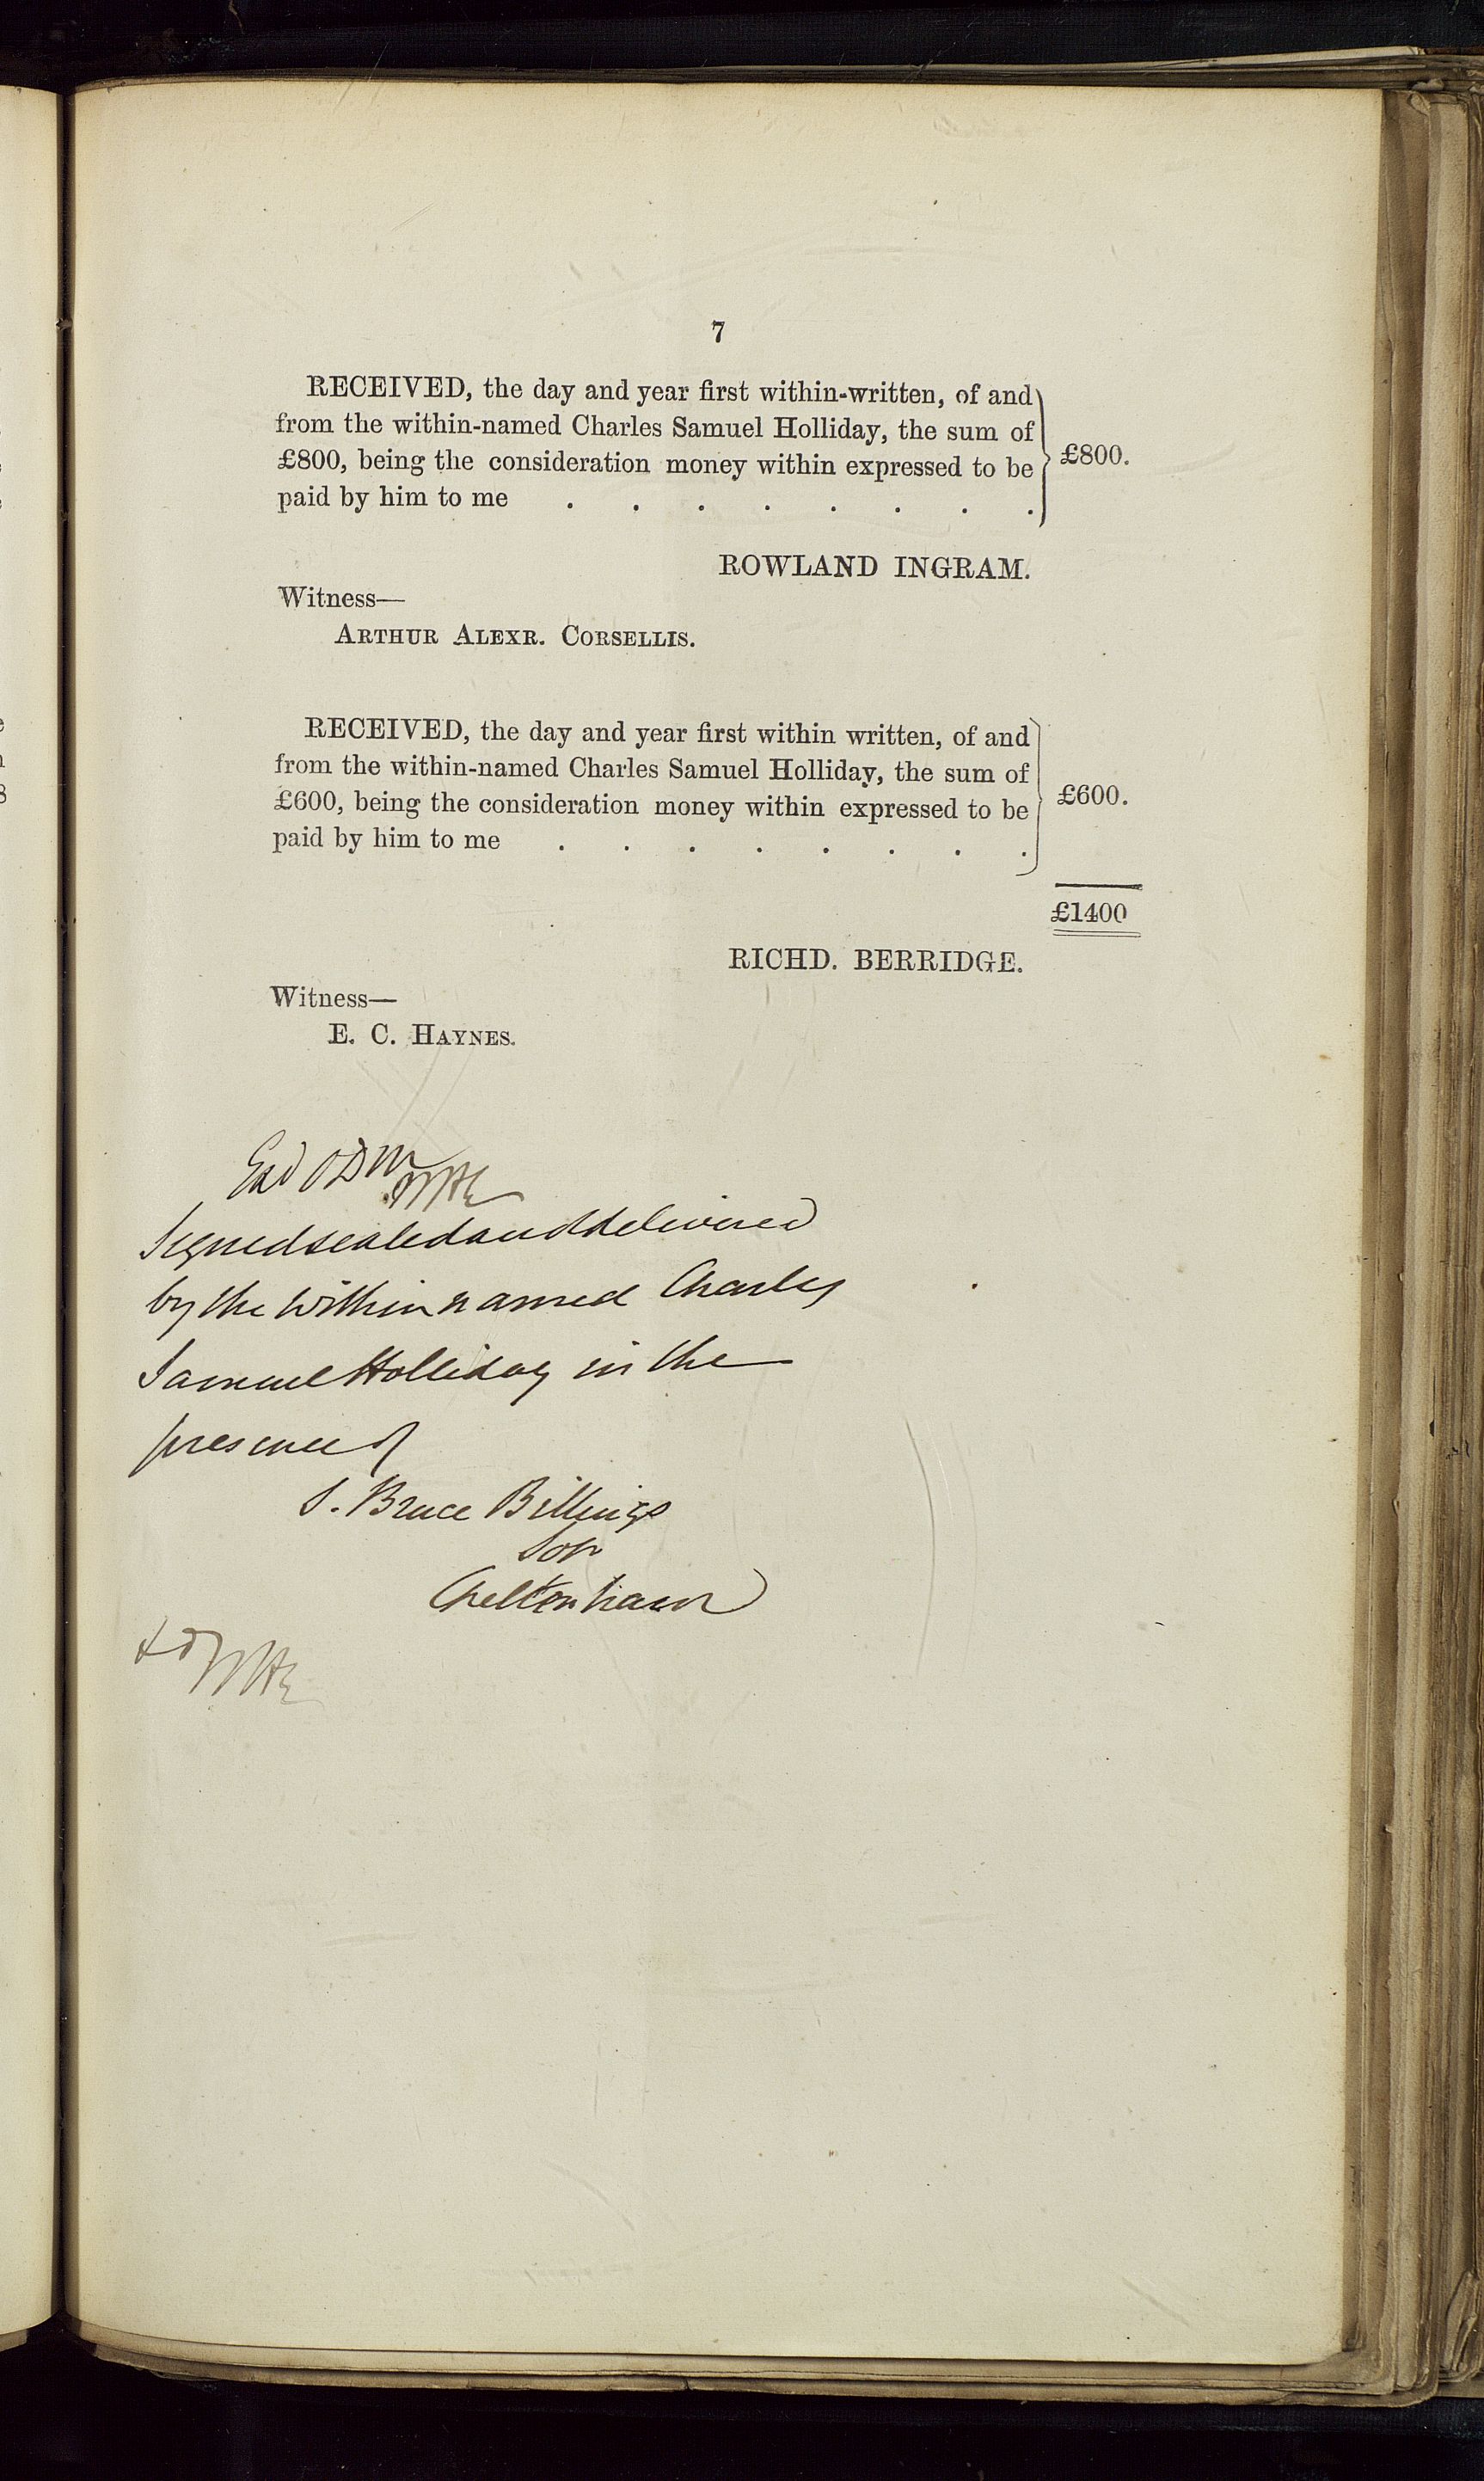 7
RECEIVED, the day and year first within-written, of and
from the within-named Charles Samuel Holliday, the sum of
£800, being the consideration money within expressed to be
paid by him to me . . . . . . . .
£800.
ROWLAND INGRAM.
Witness—
ARTHUR ALEXR. CORSELLIS.
RECEIVED, the day and year first within written, of and
from the within-named Charles Samuel Holliday, the sum of
£600, being the consideration money within expressed to be
paid by him to me . . . . . . . .
£600.
£1400
RICHD. BERRIDGE.
Witness—
E. C. HAYNES.
Signed sealed and delivered
by the within named Charles
Samuel Holliday in the
presence of
S. Bruce Billings
Solr
Cheltenham